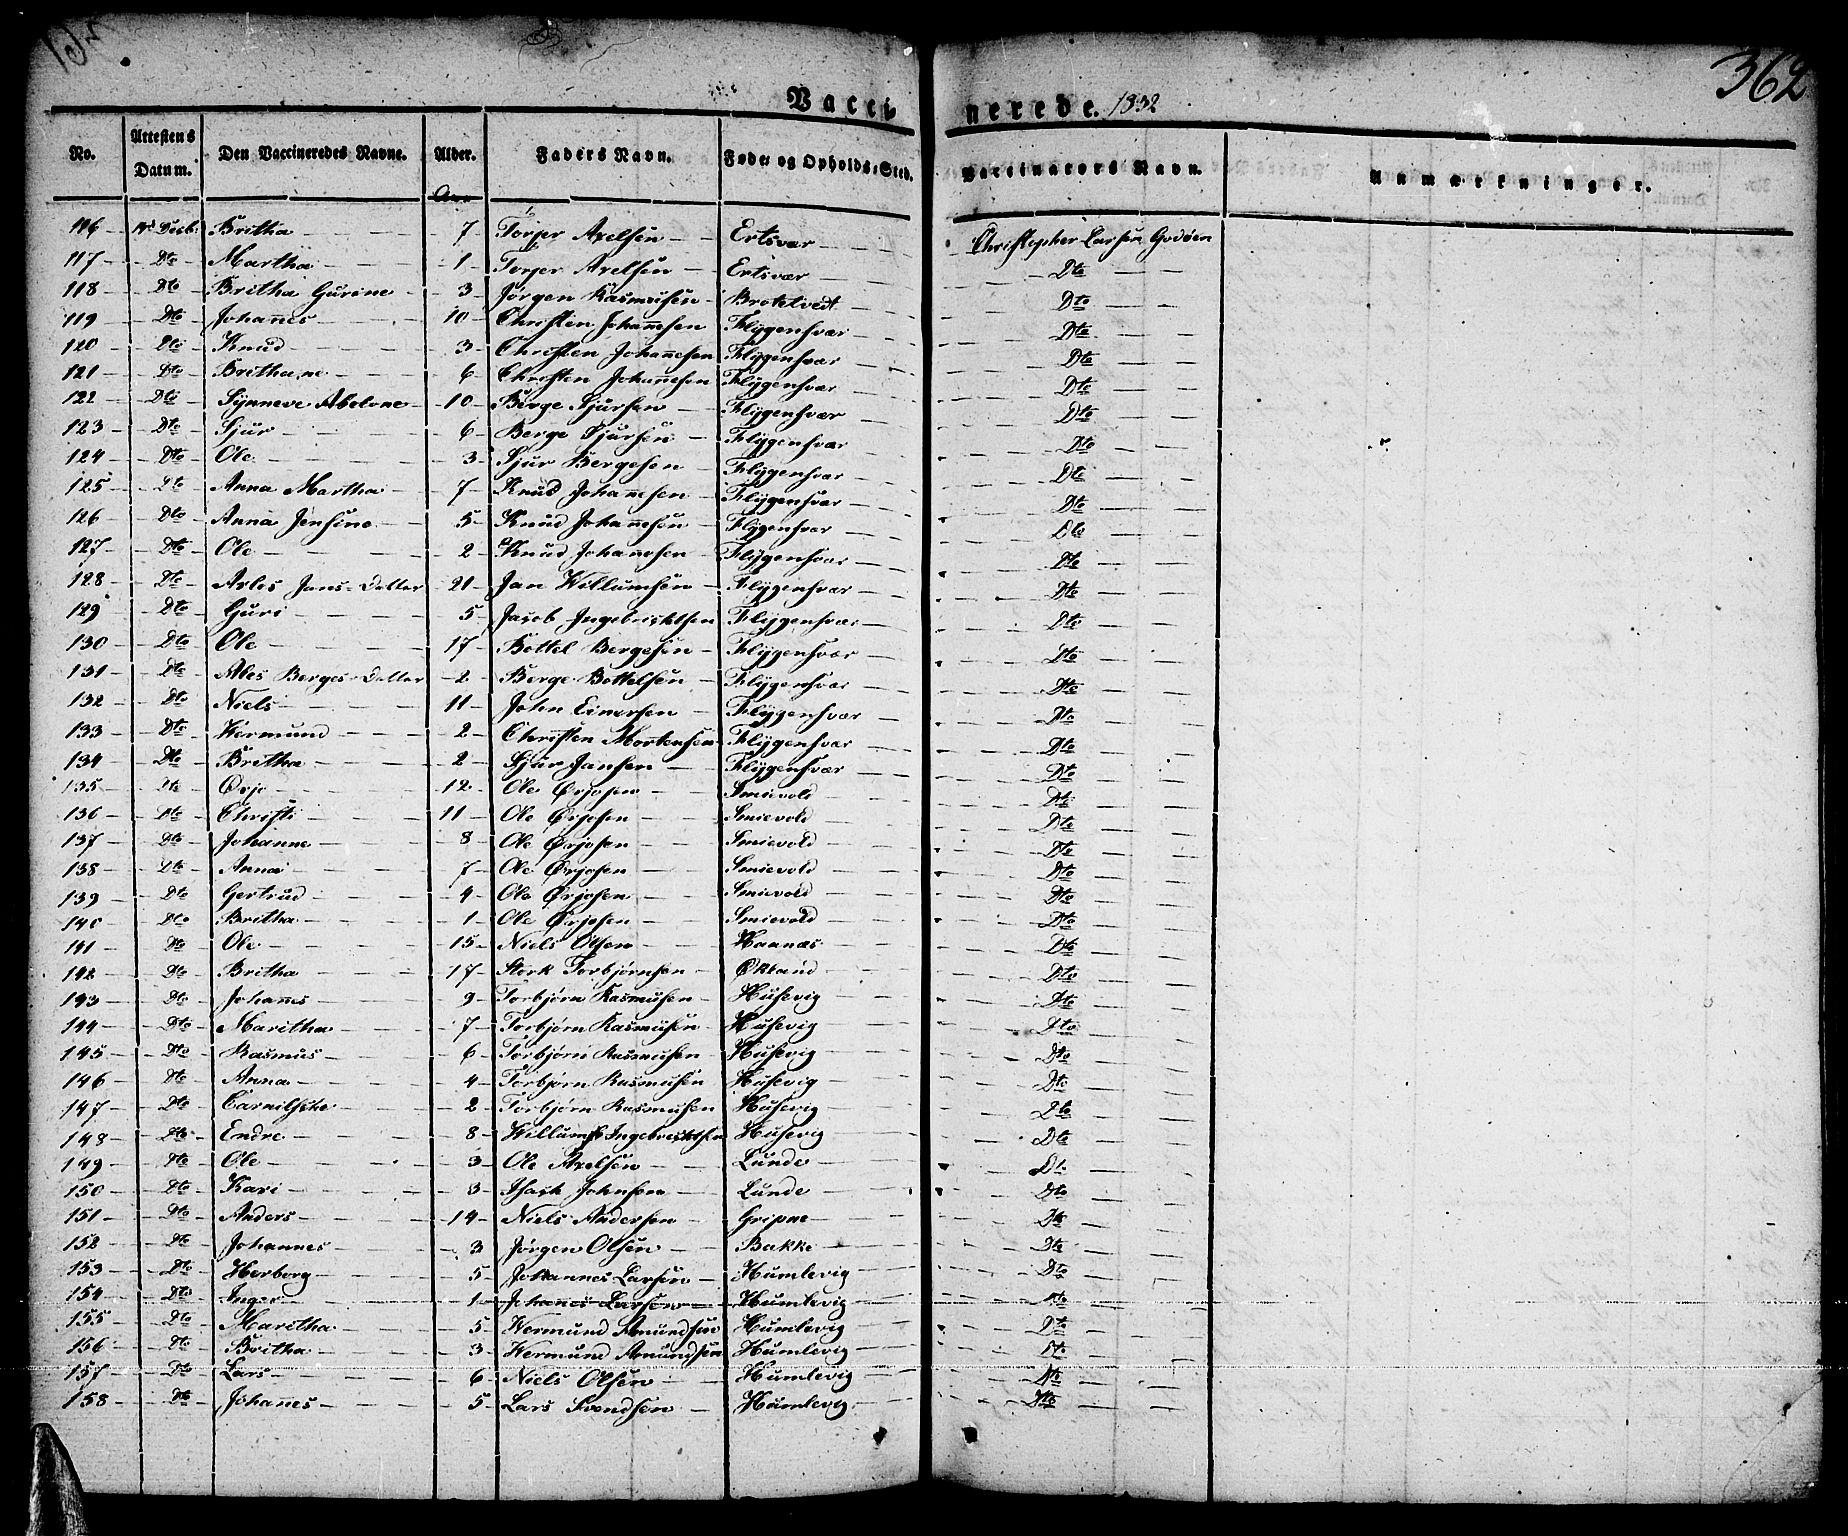 362
Vaccinerede. 1832
No. Attestens Datum. Den Vaccineredes Navne. Alder. Faders Navn. Føde- og Opholds-Sted. Vaccinateurs Navn. Anmærkninger.
Aar
116 Decb. Britha 7 Torjer Axelsen Ertsvær Christopher Larsen Godøen
117 Dto Martha 1 Torjer Axelsen Ertsvær Dto
118 Dto Britha Gurine 3 Jörgen Rasmusen Brotetvedt Dto
119 Dto Johannes 10 Christen Johannesen Flÿgensvær Dto
120 Dto Knud 3 Christen Johannesen Flÿgensvær Dto
121 Dto Brithane 6 Christen Johannesen Flÿgensvær Dto
122 Dto Sÿnneve Abelone 10 Berge Sjursen Flÿgensvær Dto
123 Dto Sjur 6 Berge Sjursen Flÿgensvær Dto
124 Dto Ole 3 Sjur Bergesen Flÿgensvær Dto
125 Dto Anna Martha 7 Knud Johannesen Flÿgensvær Dto
126 Dto Anna Jensine 5 Knud Johannesen Flÿgensvær Dto
127 Dto Ole 2 Knud Johannesen Flÿgensvær Dto
128 Dto Arles Jans-Datter 21 Jan Willumsen Flÿgensvær Dto
129 Dto Guri 5 Jacob Ingebricktsen Flÿgensvær Dto
130 Dto Ole 17 Bottel Bergesen Flÿgensvær Dto
131 Dto Ales Berges-Datter 2 Berge Bottelsen Flÿgensvær Dto
132 Dto Niels 11 John Einersen Flÿgensvær Dto
133 Dto Wermund 2 Christen Mortensen Flÿgensvær Dto
134 Dto Britha 2 Sjur Jansen Flÿgensvær Dto
135 Dto Ørjo 12 Ole Ørjosen Smievold Dto
136 Dto Christi 11 Ole Ørjosen Smievold Dto
137 Dto Johanne 8 Ole Ørjosen Smievold Dto
138 Dto Anna 7 Ole Ørjosen Smievold Dto
139 Dto Gertrud 4 Ole Ørjosen Smievold Dto
140 Dto Britha 1 Ole Ørjosen Smievold Dto
141 Dto Ole 15 Niels Olsen Haanæs Dto
142 Dto Britha 17 Stork Torbjørnsen Økland Dto
143 Dto Johannes 9 Torbjørn Rasmusen Husevig Dto
144 Dto Maritha 7 Torbjørn Rasmusen Husevig Dto
145 Dto Rasmus 6 Torbjørn Rasmusen Husevig Dto
146 Dto Anna 4 Torbjørn Rasmusen Husevig Dto
147 Dto Carnilsche 2 Torbjørn Rasmusen Husevig Dto
148 Dto Endre 8 Willum Ingebricktsen Husevig Dto
149 Dto Ole 3 Ole Axelsen Lunde Dto
150 Dto Kari 3 Isack Johnsen Lunde Dto
151 Dto Anders 14 Niels Andersen Gripne Dto
152 Dto Johannes 3 Jörgen Olsen Bakke Dto
153 Dto Herborg 5 Johannes Larsen Humlevig Dto
154 Dto Inger 1 Johannes Larsen Humlevig Dto
155 Dto Maritha 5 Wermund Amundsen Humlevig Dto
156 Dto Britha 3 Wermund Amundsen Humlevig Dto
157 Dto Lars 6 Niels Olsen Humlevig Dto
158 Dto Johannes 5 Lars Svendsen Humlevig Dto